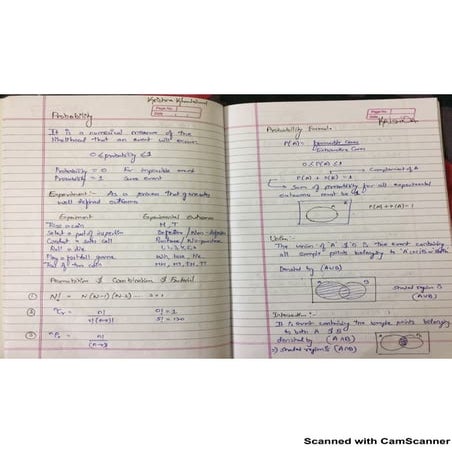 Krishna
Probability
It is a numerical measure of the
likelihood that an event will occur.
0 ≤ probability ≤ 1
Probability = 0 For impossible event
Probability = 1 event
Experiment:- process that generates
well defined outcomes
Experiment Experimental Outcomes
Toss a coin H, T
Select a part of inspection Defective / Non-defective
Conduct a sales call Purchase / No-purchase
Roll a die 1, 2, 3, 4, 5, 6
Play a football game Win, lose, tie
Toss of two coin HH, HT, TH, TT
Permutation & Combination & Factorial
① N! = N (N-1) (N-2) ... 1
② nCr = n! 0! = 1
r!(n-r)! 5! = 120
③ nPr = n!
(n-r)!
Page No.
Date
KRISHNA
Probability Formula
P(A) = Favourable Cases
Cases
0 ≤ P(A) ≤ 1
Complement of A
P(A) + = 1
Sum of probability for all experimental
outcomes must be = 1
A
Union:-
The union of A & B is the event containing
all sample points belonging to A or B or both.
Denoted by (A∪B)
Shaded region is
(A∪B)
Intersection:-
It is event containing the sample points belonging
to both A & B
denoted by (A∩B)
Shaded region is (A∩B)
Scanned with CamScanner